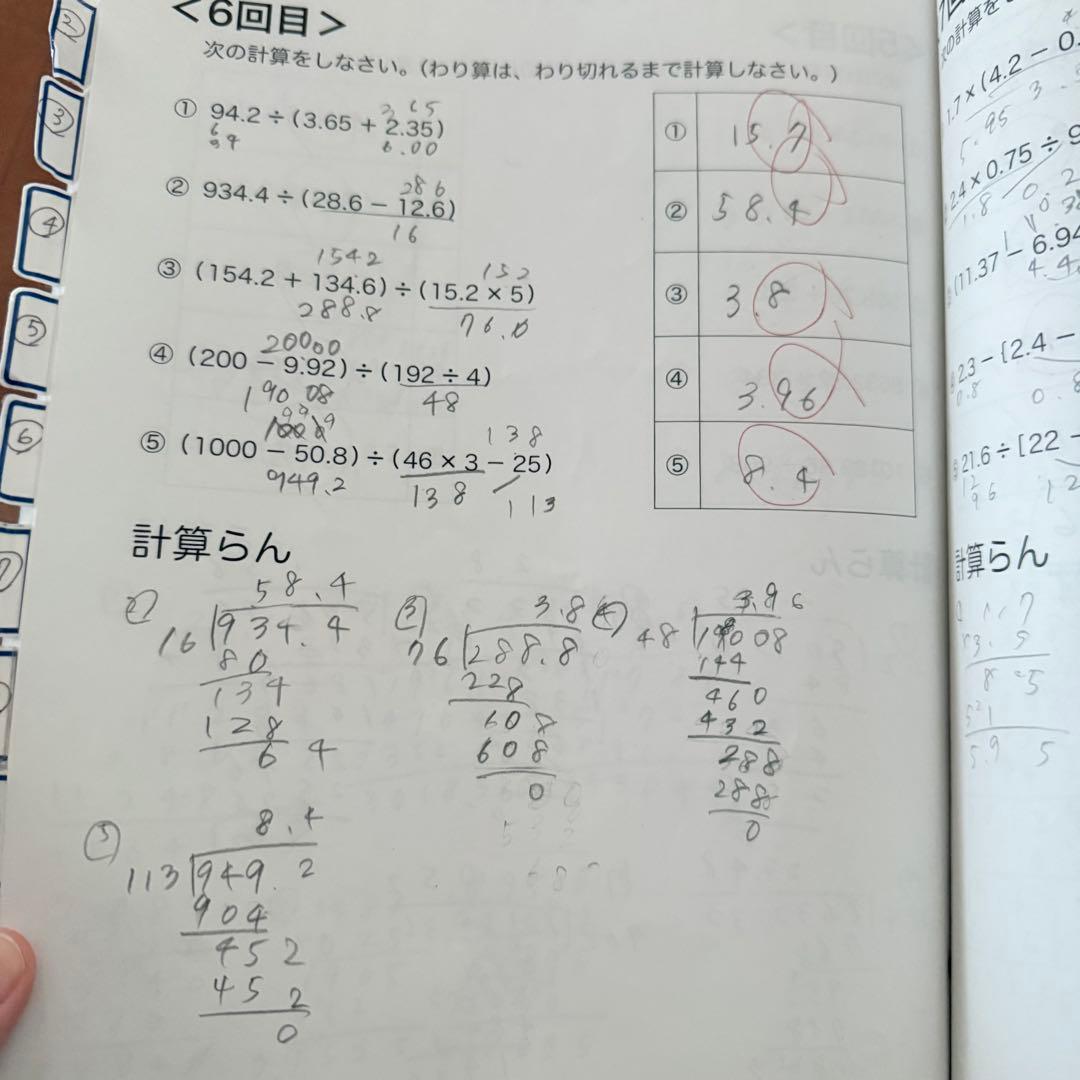 ②
③
④
⑤
⑥
<6回目>
次の計算をしなさい。(わり算は、わり切れるまで計算しなさい。)
① 94.2÷(3.65+2.35)
6.00
② 934.4÷(28.6−12.6)
286
16
③ (154.2+134.6)÷(15.2×5)
1542
152
288.8
76.0
④ (200−9.92)÷(192÷4)
20000
190 08
48
⑤ (1000−50.8)÷(46×3−25)
138
949.2
138
113
① 15.7
② 58.4
③ 3.8
④ 3.96
⑤ 8.4
計算らん
②
58.4
16 934.4
80
134
128
6 4
③
3.8
76 288.8
228
608
608
0
④
3.96
48 190 08
144
460
432
288
288
0
⑤
8.4
113 949.2
904
452
452
0
次の計算を
1.7×(4.2−0.
5.95
2.4×0.75÷9
1.8
(11.37−6.94
4.4
23−[2.4−
0.8
0.8
21.6÷[22−
計算らん